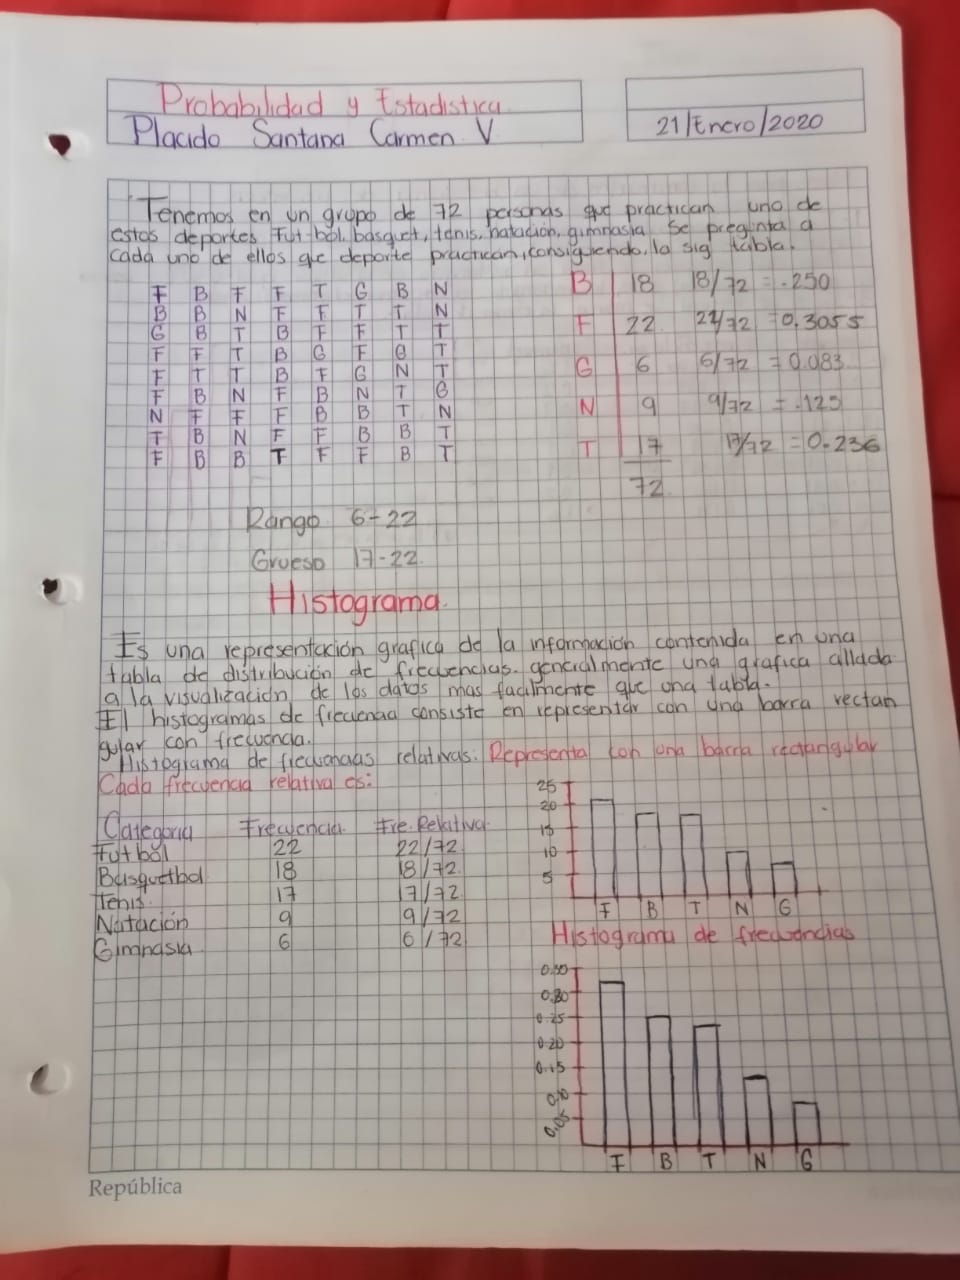 Probabilidad y Estadistica
Placido Santana Carmen V
21/Enero/2020
Tenemos en un grupo de 72 personas que practican uno de
estos deportes Fut bol, basquet, tenis, natación, gimnasia Se pregunta a
cada uno de ellos que deporte practican, consiguiendo, la sig tabla.
F B F F T G B N
B B N F F T T N
G B T B F F T T
F F T B G F G T
F T T B F G N T
F B N F B N T G
N F F F B B T N
T B N F F B B T
F B B T F F B T
B 18 18/72 = .250
F 22 22/72 = 0.3055
G 6 6/72 = 0.083
N 9 9/72 = .125
T 17 17/72 = 0.236
72
Rango 6-22
Grueso 17-22
Histograma.
Es una representación grafica de la información contenida en una
tabla de distribución de frecuencias. generalmente una grafica allada
a la visualización de los datos mas facilmente que una tabla.
El histogramas de frecuencia consiste en representar con una barra rectan
gular con frecuencia.
Histograma de frecuencias relativas: Representa con una barra rectangular
Cada frecuencia relativa es:
Categoria Frecuencia Fre. Relativa
Futbol 22 22/72
Basquetbol 18 18/72
Tenis 17 17/72
Natación 9 9/72
Gimnasia 6 6/72
25
20
15
10
5
F B T N G
Histograma de frecuencias
0.30
0.25
0.20
0.15
0.10
0.05
F B T N G
República